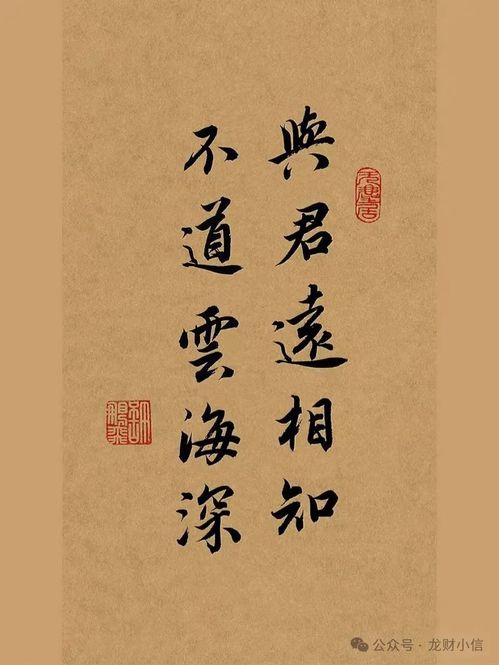 與君遠相知
不道雲海深
公众号·龙财小信